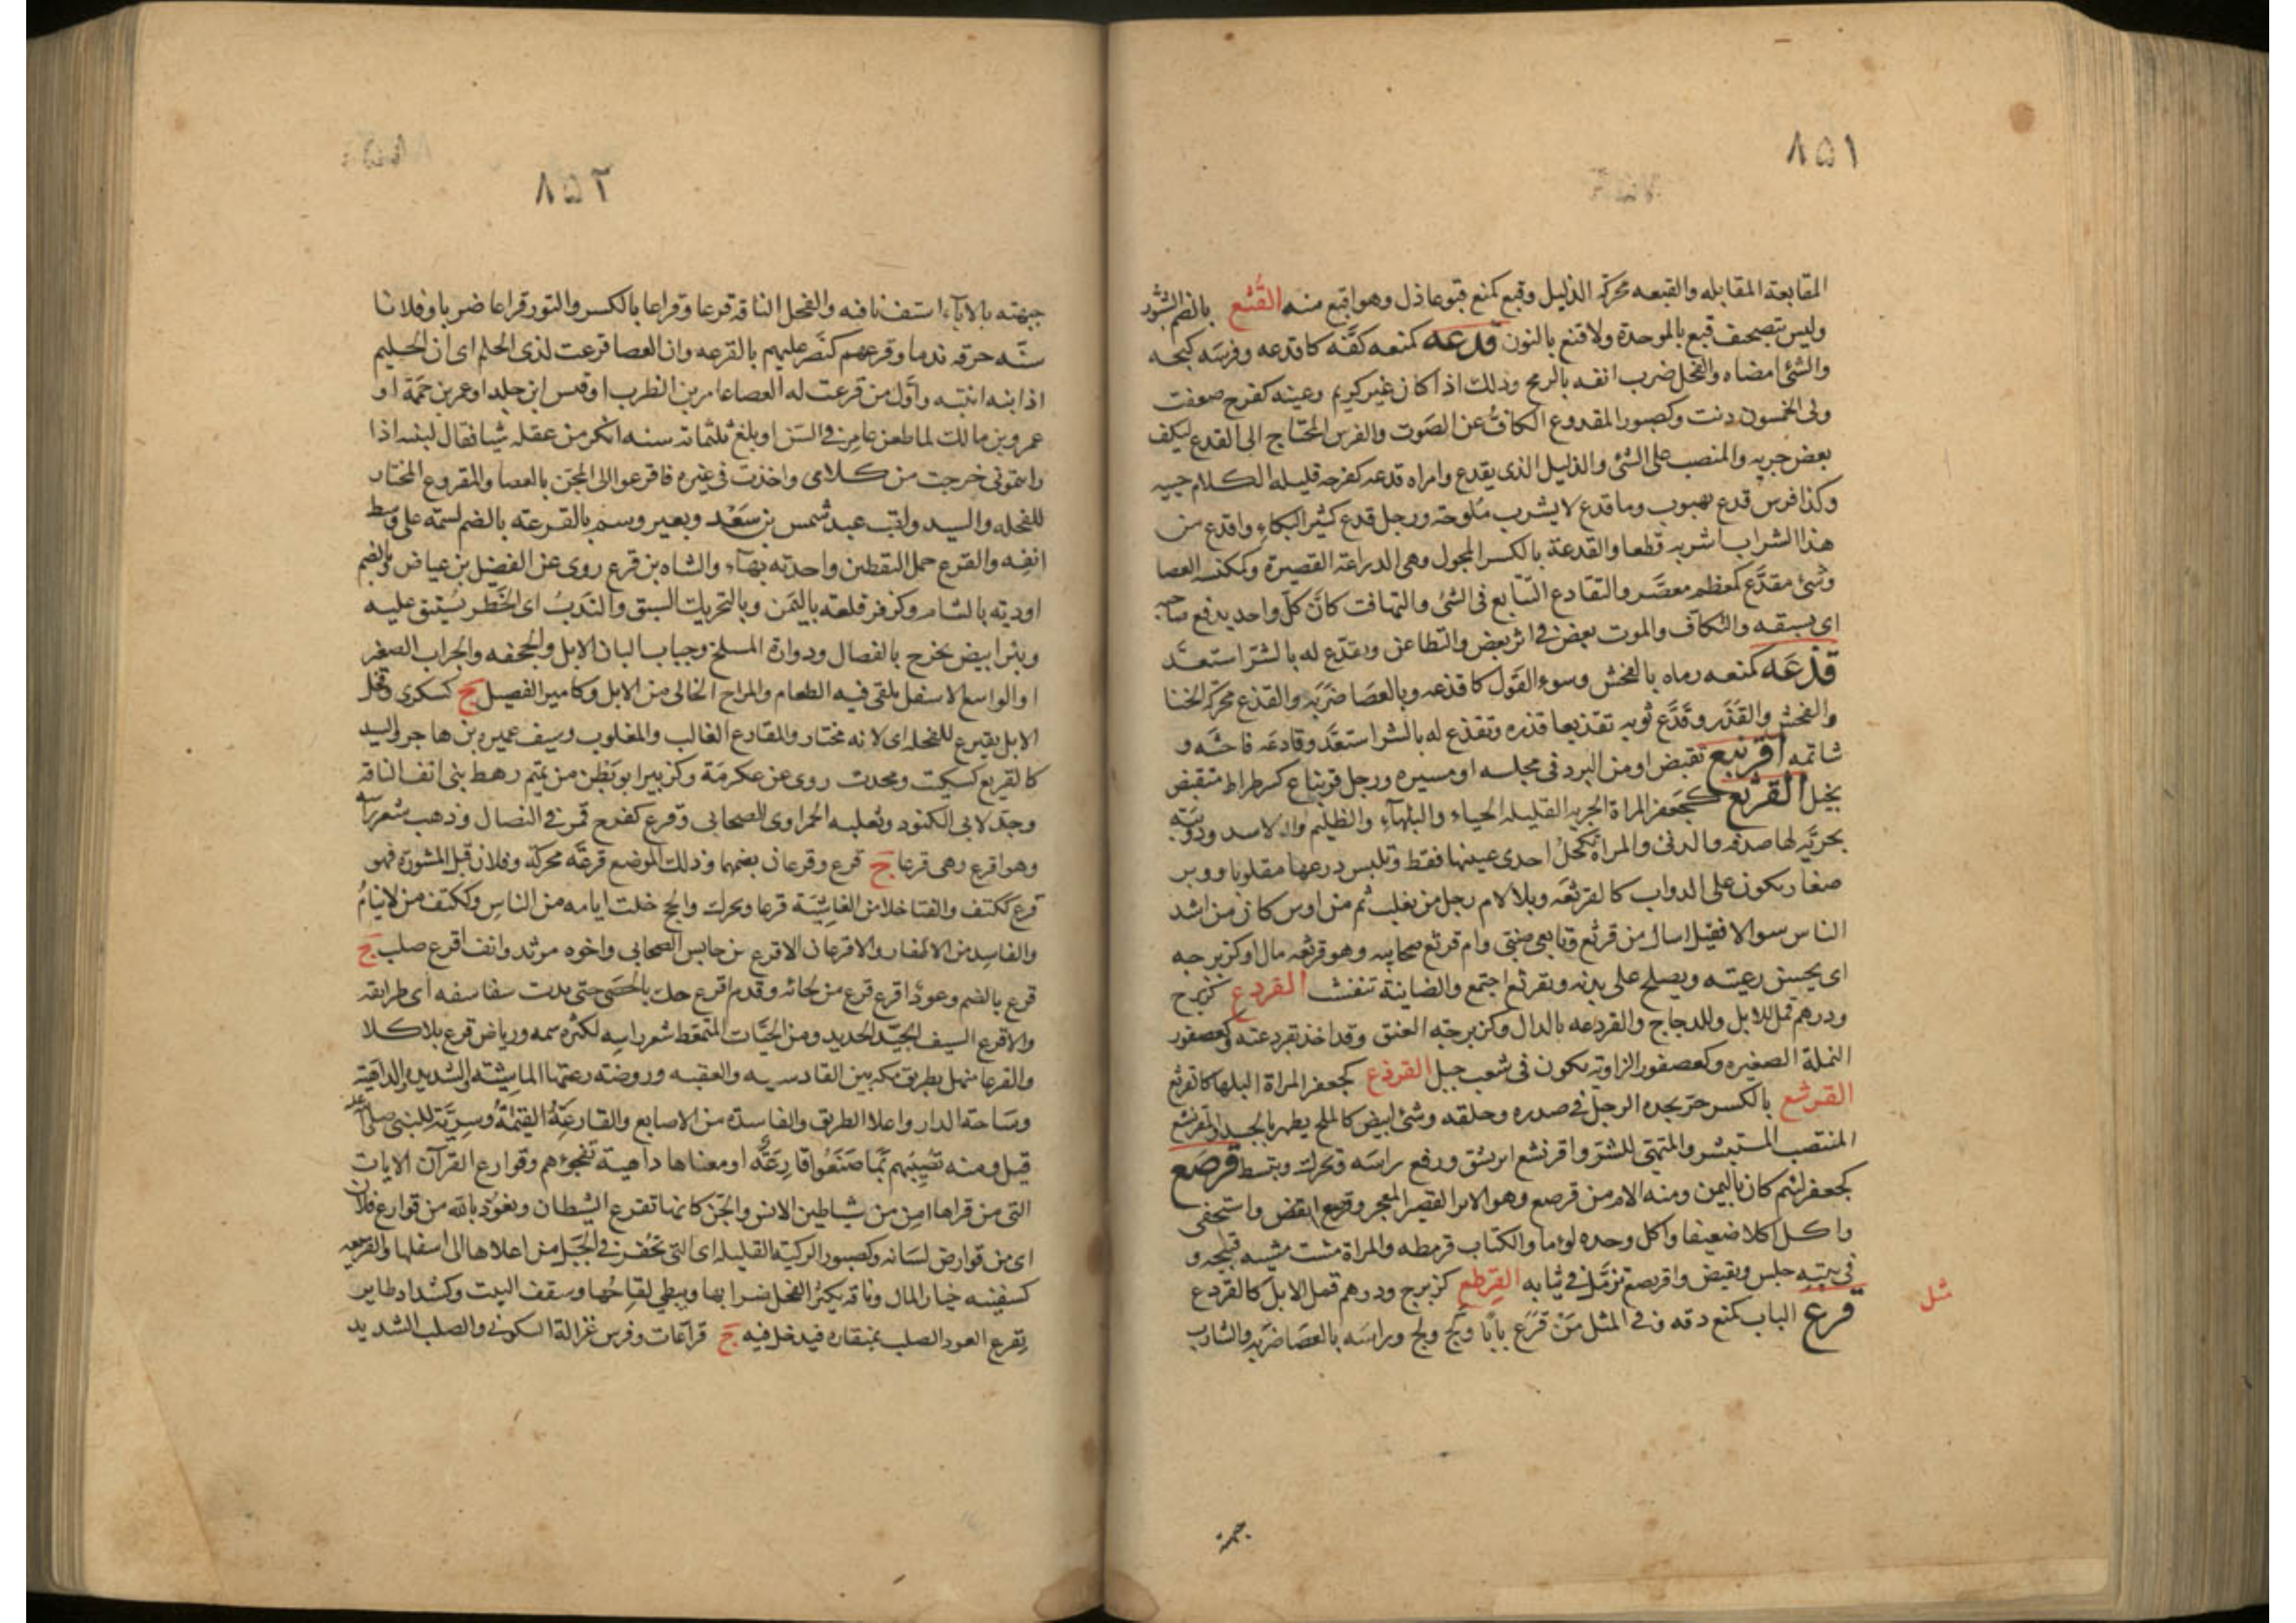 ٨٥١
المقابعة المقابله والقبعه محركة الذليل وقبع كمنع قبوعا ذل وهو اقبع منه القُنْع بالضم الشبّور
وليس بتصحيف قبع بالموحدة ولا قنع بالنون قدعه كمنعه كفّه كاقدعه وفرسَه كبحه
والشئ امضاه والفحل ضرب انفه بالرمح وذلك اذا كان غير كريم وعينه كفرح ضعفت
ولى الخمسون دنت وكصبور المقدوع الكافّ عن الصوت والفرس المحتاج الى القدع ليكف
بعض جريه والمنصب على الشئ والذليل الذى يقدع وامراه قدعه كفرحه قليله الكلام حييه
وكذا فرس قدع هبوب وما قدع لا يشرب ملوحة ورجل قدع كثير البكاء واقدع من
هذا الشراب اشربه قطعا والقدعة بالكسر المجول وهى الدراعة القصيرة وكمكنسه العصا
وشئ مقدّع كمعظم معصّر والتقادع التتابع فى الشئ والتهافت كانّ كلّ واحد يدفع صاحبه
اى يسبقه والتكافّ والموت بعض فى اثر بعض والتطاعن وتقدّع له بالشرّ استعدّ
قذعَه كمنعه رماه بالفحش وسوء القول كاقذعه وبالعصا ضربه والقذع محركة الخنا
والفحش والقذر وقذّع ثوبه تقذيعا قذره وتقذع له بالشر استعدّ وقاذعه فاحشه و
شاتمه اقرنبع تقبض او من البرد فى مجلسه او مسيره ورجل قرنباع كسرطراط منقبض
بخيل القرثع كجعفر المراة الجريه القليله الحياء والبلهآء والظليم والاسد ودويبّة
بحريّة لها صدفه والدنئ والمراة تكحل احدى عينيها فقط وتلبس درعها مقلوبا ووبر
صغار يكون على الدواب كالقرثعه وبلا لام رجل من تغلب ثم من اوس كان من اشد
الناس سوالا فقيل اسال من قرثع وتابعى ضبّى وام قرثع صحابيه وهو قرثعه مال وكزبرجه
اى يحسن رعيته ويصلح على يديه وتقرثع اجتمع والضاينة تنفشت القردع كزبرج
ودرهم قمل للابل وللدجاج والقردعه بالدال وكزبرجة العنق وقد اخذ بقردعته وكعصفور
النملة الصغيره وكعصفور الزاوية يكون فى شعب جبل القرذع كجعفر المراة البلهاء كالقرثع
القرشع بالكسر حرّ يجده الرجل فى صدره وحلقه وشئ ابيض كالملح يظهر بالجسد والقرنشع
المنتصب المستبشر والمتهيئ للشرّ واقرنشع ابرنشق ورفع راسه وتحرك وتبسط قرصع
كجعفر لئيم كان باليمن ومنه الام من قرصع وهو الاير القصير المعجر وقرصع انقبض واستخفى
واكل اكلا ضعيفا واكل وحده لوما والكتاب قرمطه والمراة مشت مشيه قبيحه و
فى بيته جلس وتقبض واقرنصع تزمّل فى ثيابه القِرطع كزبرج ودرهم قمل الابل كالقردع
قرع الباب كمنع دقه وفى المثل مَن قَرَع بابًا ولَجّ ولج وراسَه بالعصا ضربه والشارب
ثل
جبهته
٨٥٢
جبهته بالانآء استف ما فيه والفحل الناقة قرعا وقراعا بالكسر والثور قراعا ضربا وفلانا
سنّه حرقه ندما وقرعهم كنصر غلبهم بالقرعه وان العصا قرعت لذى الحلم اى ان الحليم
اذا نبه انتبه واوّل من قرعت له العصا عامر بن الظرب او قيس ابن خلد او عمر بن حممة او
عمرو بن مالك لما طعن عامر فى السن او بلغ ثلثمائه سنه انكر من عقله شيا فقال لبنيه اذا
رايتمونى خرجت من كلامى واخذت فى غيره فاقرعوا الى المجنّ بالعصا والمقروع المختار
للفحله والسيد ولقب عبد شمس بن سَعْد وبعير وسم بالقرعة بالضم لسمة على وسط
انفه والقرع حمل اليقطين واحدته بهآء والشاه بن قرع روى عن الفضيل بن عياض وبالضم
اودية بالشام وكزفر قلعة باليمن وبالتحريك السبق والندب اى الخطر يستبق عليه
وبثر ابيض يخرج بالفصال ودواؤه الملح وجباب البان الابل والجحفه والجراب الصغير
او الواسع الاسفل يلقى فيه الطعام والمراح الخالى من الابل وكامير الفصيل ج كسكرى وفحل
الابل يقرع للفحله اى لانه مختار والمقارع الغالب والمغلوب وسيف عميره بن هاجر والسيد
كالقريع كسكيت ومحدث روى عن عكرمة وكزبير ابو بطن من تميم رهط بنى انف الناقة
وجدّ لابى الكنود وثعلبه الحمراوى الصحابى وقرع كفرح قمر فى النضال وذهب شعر راسه
وهو اقرع وهى قرعا ج قرع وقرعان بضمهما وذلك الموضع قرعَة محركة وفلان قبل المشورة فهو
قرع ككتف والفنا خلا من الغاشية قرعا ويحرك والحج خلت ايامه من الناس وككتف من لا ينام
والفاسد من الاظفار والاقرعان الاقرع بن حابس الصحابى واخوه مرثد وانف اقرع صلب ج
قرع بالضم وعود اقرع قرع من لحائه وقدم اقرع حك بالحصى حتى بدت سفاسفه اى طرايقه
والاقرع السيف الجيّد الحديد ومن الحيّات المتمعّط شعر راسه لكثره سمه ورياض قرع بلا كلا
والقرعا منهل بطريق مكه بين القادسيه والعقبه وروضه رعتها الماشيته والشديده والداهية
وسَاحة الدار واعلا الطريق والفاسدة من الاصابع والقارعَةُ القِيمَةُ وسريّة للنبى صلى الله عليه
قيل ومنه تُصِيبُهم بمَا صَنَعُوا قارِعَةٌ او معناها داهية تفجؤهم وقوارع القرآن الايات
التى من قراها امن من شياطين الانس والجن كانها تقرع الشيطان ونعوذ بالله من قوارع فلان
اى من قوارض لسانه وكصبور الركية القليله اى التى تحفر فى الجبل من اعلاها الى اسفلها والقريعه
كسفينه خيار المال وناقه يكثر الفحل ضرابها ويبطى لقاحُها وسقف البيت وكشداد طاير
يقرع العود الصلب بمنقاره فيدخل فيه ج قراعات وفرس غزالة السكونى والصلب الشديد